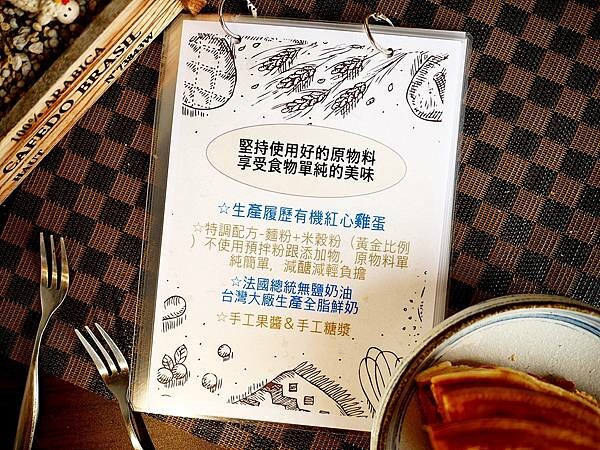 100% ARABICA
CAFEDO BRASIL
堅持使用好的原物料
享受食物單純的美味
☆生產履歷有機紅心雞蛋
☆特調配方-麵粉+米穀粉（黃金比例
）不使用預拌粉跟添加物，原物料單
純簡單，減醣減輕負擔
☆法國總統無鹽奶油
台灣大廠生產全脂鮮奶
☆手工果醬＆手工糖漿